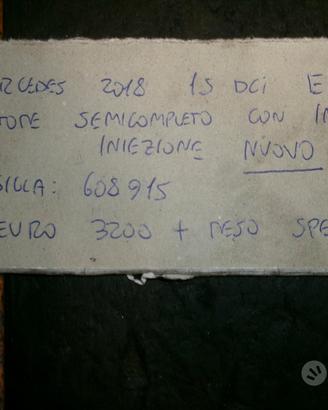 RCEDES 2018 1S DCi E
TORE SEMICOMPLETO CON IN
INIEZIONE NUOVO
SIGLA: 608915
EURO 3200 + RESO SPE